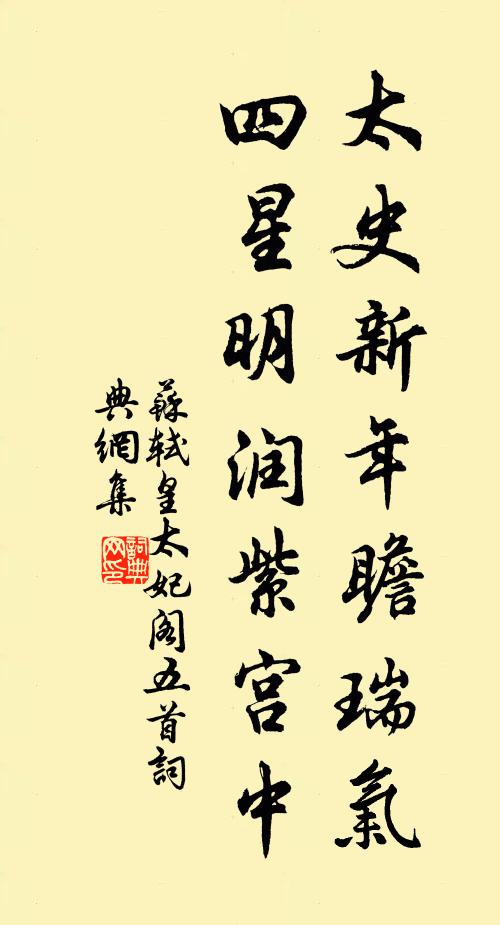 太史新年瞻瑞氣
四星明润紫宫中
蘇軾皇太妃阁五首詞
典網集
詞典
网印